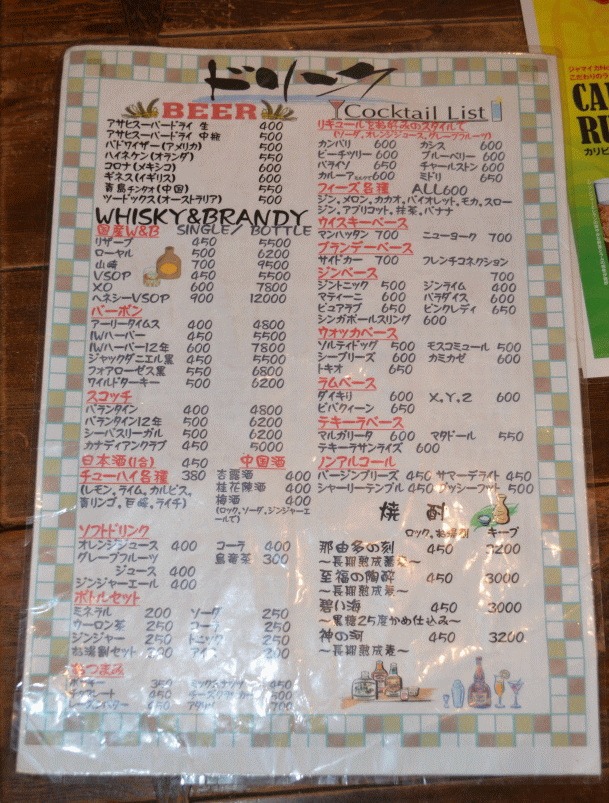 ドリンク
BEER
アサヒスーパードライ 生 400
アサヒスーパードライ 中瓶 500
バドワイザー(アメリカ) 500
ハイネケン(オランダ) 550
コロナ(メキシコ) 600
ギネス(イギリス) 600
青島チンタオ(中国) 550
ツードックス(オーストラリア) 500
WHISKY&BRANDY
国産W&B SINGLE/BOTTLE
リザーブ 450 5500
ローヤル 500 6200
山崎 700 9500
VSOP 450 5500
XO 600 7800
ヘネシーVSOP 900 12000
バーボン
アーリータイムス 400 4800
IWハーパー 450 5500
IWハーパー12年 600 7800
ジャックダニエル黒 450 5500
フォアローゼス黒 550 6800
ワイルドターキー 500 6200
スコッチ
バランタイン 400 4800
バランタイン12年 500 6200
シーバスリーガル 500 6200
カナディアンクラブ 450 5000
日本酒(1合) 450
チューハイ各種 380
(レモン、ライム、カルピス、
青リンゴ、巨峰、ライチ)
中国酒
杏露酒 400
桂花陳酒 400
梅酒 400
(ロック、ソーダ、ジンジャーエールで)
ソフトドリンク
オレンジジュース 400 コーラ 400
グレープフルーツ
ジュース 400 烏龍茶 300
ジンジャーエール 400
ボトルセット
ミネラル 200 ソーダ 250
ウーロン茶 250 コーラ 250
ジンジャー 250 トニック 250
お湯割セット 200 アイス 200
おつまみ
350 ミックスナッツ 450
チョコレート 450 500
450 700
Cocktail List
リキュールをお好みのスタイルで
(ソーダ、オレンジジュース、グレープフルーツ)
カンパリ 600 カシス 600
ピーチツリー 600 ブルーベリー 600
パライソ 650 チャールストン 600
カルーア 600 ミドリ 650
フィーズ各種 ALL600
ジン、メロン、カカオ、バイオレット、モカ、スロー
ジン、アプリコット、抹茶、バナナ
ウイスキーベース
マンハッタン 700 ニューヨーク 700
ブランデーベース
サイドカー 700 フレンチコネクション 700
ジンベース
ジントニック 500 ジンライム 400
マティーニ 600 パラダイス 600
ピュアラブ 650 ピンクレディ 650
シンガポールスリング 600
ウォッカベース
ソルティドッグ 500 モスコミュール 500
シーブリーズ 600 カミカゼ 600
トキオ 650
ラムベース
ダイキリ 600 X,Y,Z 600
ピバクィーン 650
テキーラベース
マルガリータ 600 マタドール 550
テキーラサンライズ 600
ノンアルコール
バージンブリーズ 450 サマーデライト 450
シャーリーテンプル 450 プッシーフット 500
焼酎
ロック、お湯割 キープ
那由多の刻 450 3200
至福の陶酔 450 3000
碧い海 450 3000
~黒糖25度かめ仕込み~
神の河 450 3200
~長期熟成麦~
ジャマイカNo
こだわりのラ
カリビ